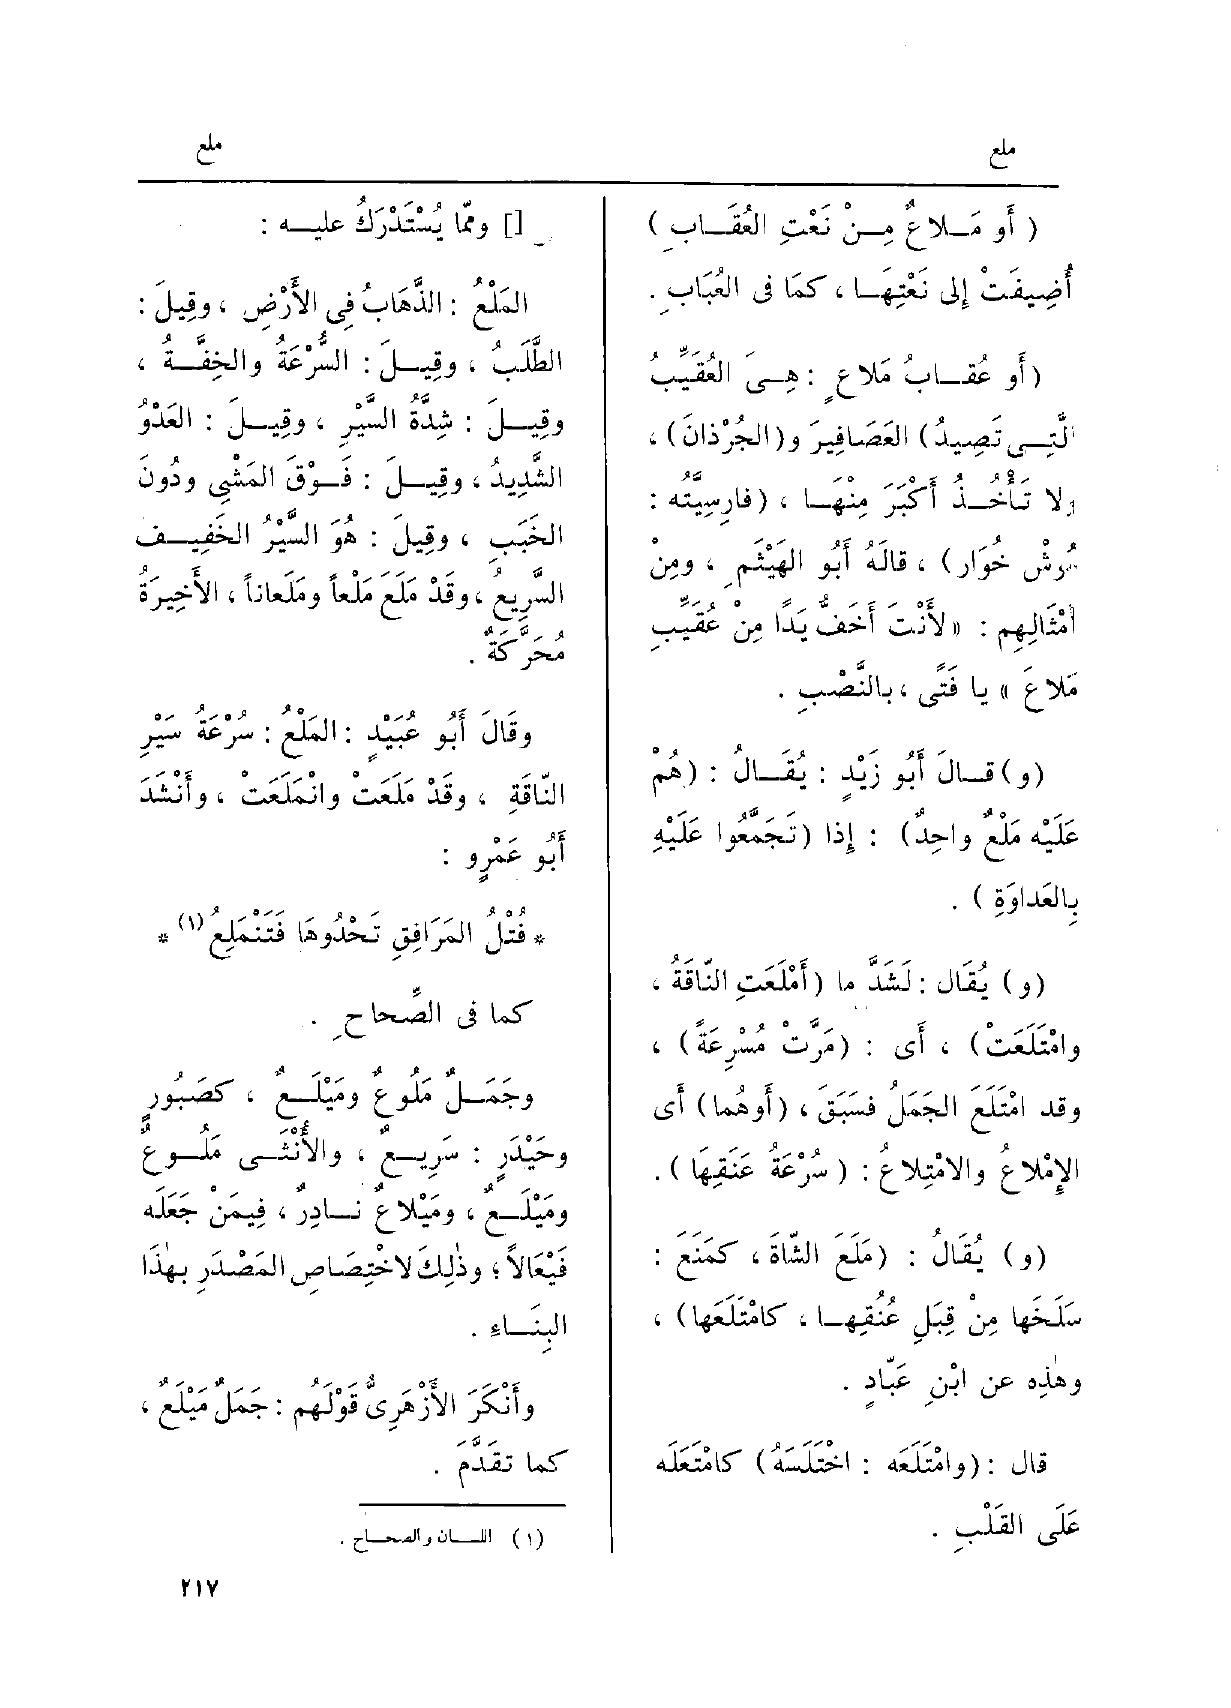 ملع
ملع
( أَو مَـلاعٌ مِـنْ نَعْتِ العُقَـابِ )
أُضِيفَتْ إِلى نَعْتِهَـا ، كمَا فى العُبَابِ .
(أَو عُقـابُ مَلاعٍ : هِـىَ العُقَيِّبُ
الَّتِـى تَصِيدُ) العَصَافِيرَ و(الجُرْذانَ) ،
ولا تَـأْخُـذُ أَكْبَرَ مِنْهَـا ، (فارِسِيَّتُه :
مُوشْ خُوَار) ، قالَهُ أَبُو الهَيْثَمِ ، ومِنْ
أَمْثَالِهِم : « لأَنْتَ أَخَفُّ يَدًا مِنْ عُقَيِّبِ
مَلاعَ » يا فَتًى ، بالنَّصْبِ .
(و) قـالَ أَبُو زَيْدٍ : يُقَـالُ : (هُمْ
عَلَيْه مَلْعٌ واحِدٌ) : إِذا (تَجَمَّعُوا عَلَيْهِ
بِالعَداوَةِ ) .
(و) يُقَال : لَشَدَّ ما (أَمْلَعَتِ النَّاقَةُ ،
وامْتَلَعَتْ) ، أَى : (مَرَّتْ مُسْرِعَةً) ،
وقد امْتَلَعَ الجَمَلُ فسَبَقَ ، (أَوهُما) أَى
الإِمْلاعُ والامْتِلاعُ : ( سُرْعَةُ عَنَقِهَا ) .
(و) يُقَالُ : (مَلَعَ الشَّاةَ ، كمَنَعَ :
سَلَخَها مِنْ قِبَلِ عُنُقِهـا ، كامْتَلَعَها) ،
وهٰذِه عن ابْنِ عَبّادٍ .
قال : (وامْتَلَعَه : اخْتَلَسَهُ) كامْتَعَلَه
عَلَى القَلْبِ .
[] وممّا يُسْتَدْرَكُ عليـه :
المَلْعُ : الذَّهَابُ فِى الأَرْضِ ، وقِيلَ :
الطَّلَبُ ، وقِيـلَ : السُّرْعَةُ والخِفَّـةُ ،
وقِيـلَ : شِدَّةُ السَّيْرِ ، وقِيـلَ : العَدْوُ
الشَّدِيدُ ، وقِيـلَ : فَـوْقَ المَشْىِ ودُونَ
الخَبَبِ ، وقِيلَ : هُوَ السَّيْرُ الخَفِيـف
السَّرِيعُ ، وقَدْ مَلَعَ مَلْعاً ومَلَعاناً ، الأَخِيرَةُ
مُحَرَّكَةٌ .
وقَالَ أَبُو عُبَيْدٍ : المَلْعُ : سُرْعَةُ سَيْرِ
النّاقَةِ ، وقَدْ مَلَعَتْ وانْمَلَعَتْ ، وأَنْشَدَ
أَبُو عَمْرٍو :
* فُتْلُ المَرَافِقِ تَحْدُوهَا فَتَنْمَلِعُ(١) *
كما فى الصّحاحِ .
وجَمَـلٌ مَلُوعٌ ومَيْلَـعٌ ، كصَبُورٍ
وحَيْدَرٍ : سَرِيـعٌ ، والأُنْثَـى مَلُـوعٌ
ومَيْلَـعٌ ، ومَيْلاعٌ نـادِرٌ ، فِيمَنْ جَعَلَه
فَيْعَالاً ؛ وذٰلِكَ لاخْتِصَاصِ المَصْدَرِ بِهٰذَا
البِنَـاءِ .
وأَنْكَرَ الأَزْهَرِىُّ قَوْلَهُم : جَمَلٌ مَيْلَعٌ ،
كما تقَدَّمَ .
(١) اللـسان والصحـاح .
٢١٧